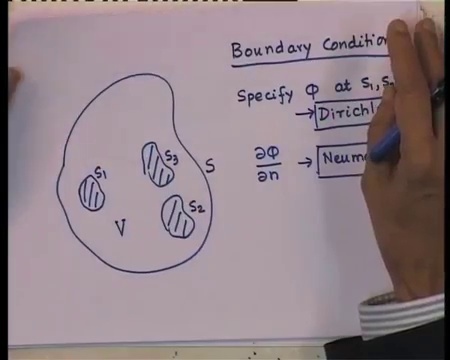 Boundary Condition
Specify Φ at S1, S2
→ Dirichl
∂Φ/∂n → Neum
S1
S3
S
S2
V